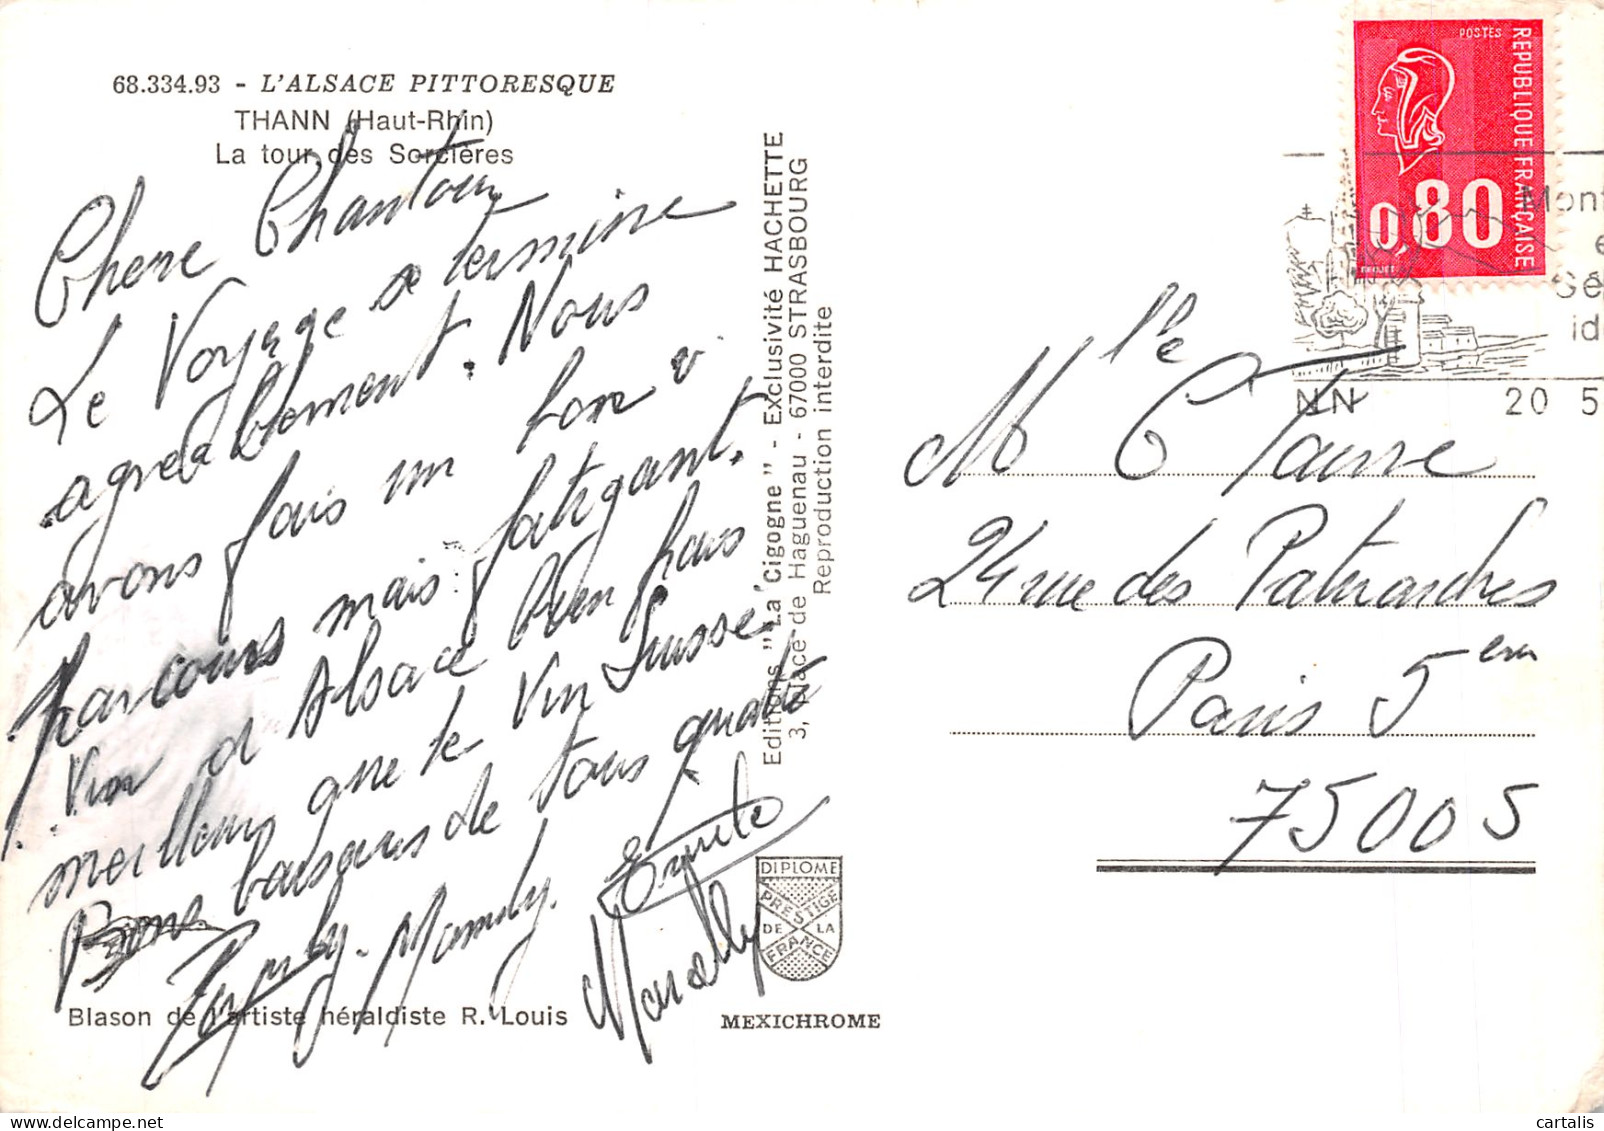 68.334.93 - L'ALSACE PITTORESQUE
THANN (Haut-Rhin)
La tour des Sorcières
Chere Chantou
Le Voyage se termine
agreablement. Nous
avons fais un bon
parcours mais fatigant.
Vin d Alsace bien plus
meilleurs que le Vin Suisse
Bons baisers de tous quatre
Mamily.
Marcelly
Blason de l'artiste héraldiste R. Louis
Editions "La Cigogne" - Exclusivité HACHETTE
3, place de Haguenau - 67000 STRASBOURG
Reproduction interdite
DIPLOME
PRESTIGE
DE LA
FRANCE
MEXICHROME
POSTES
REPUBLIQUE FRANÇAISE
0,80
Mont
e
Sé
id
NN 20 5
Mlle C
24 rue des Patriarches
Paris 5em
75005
cartalis